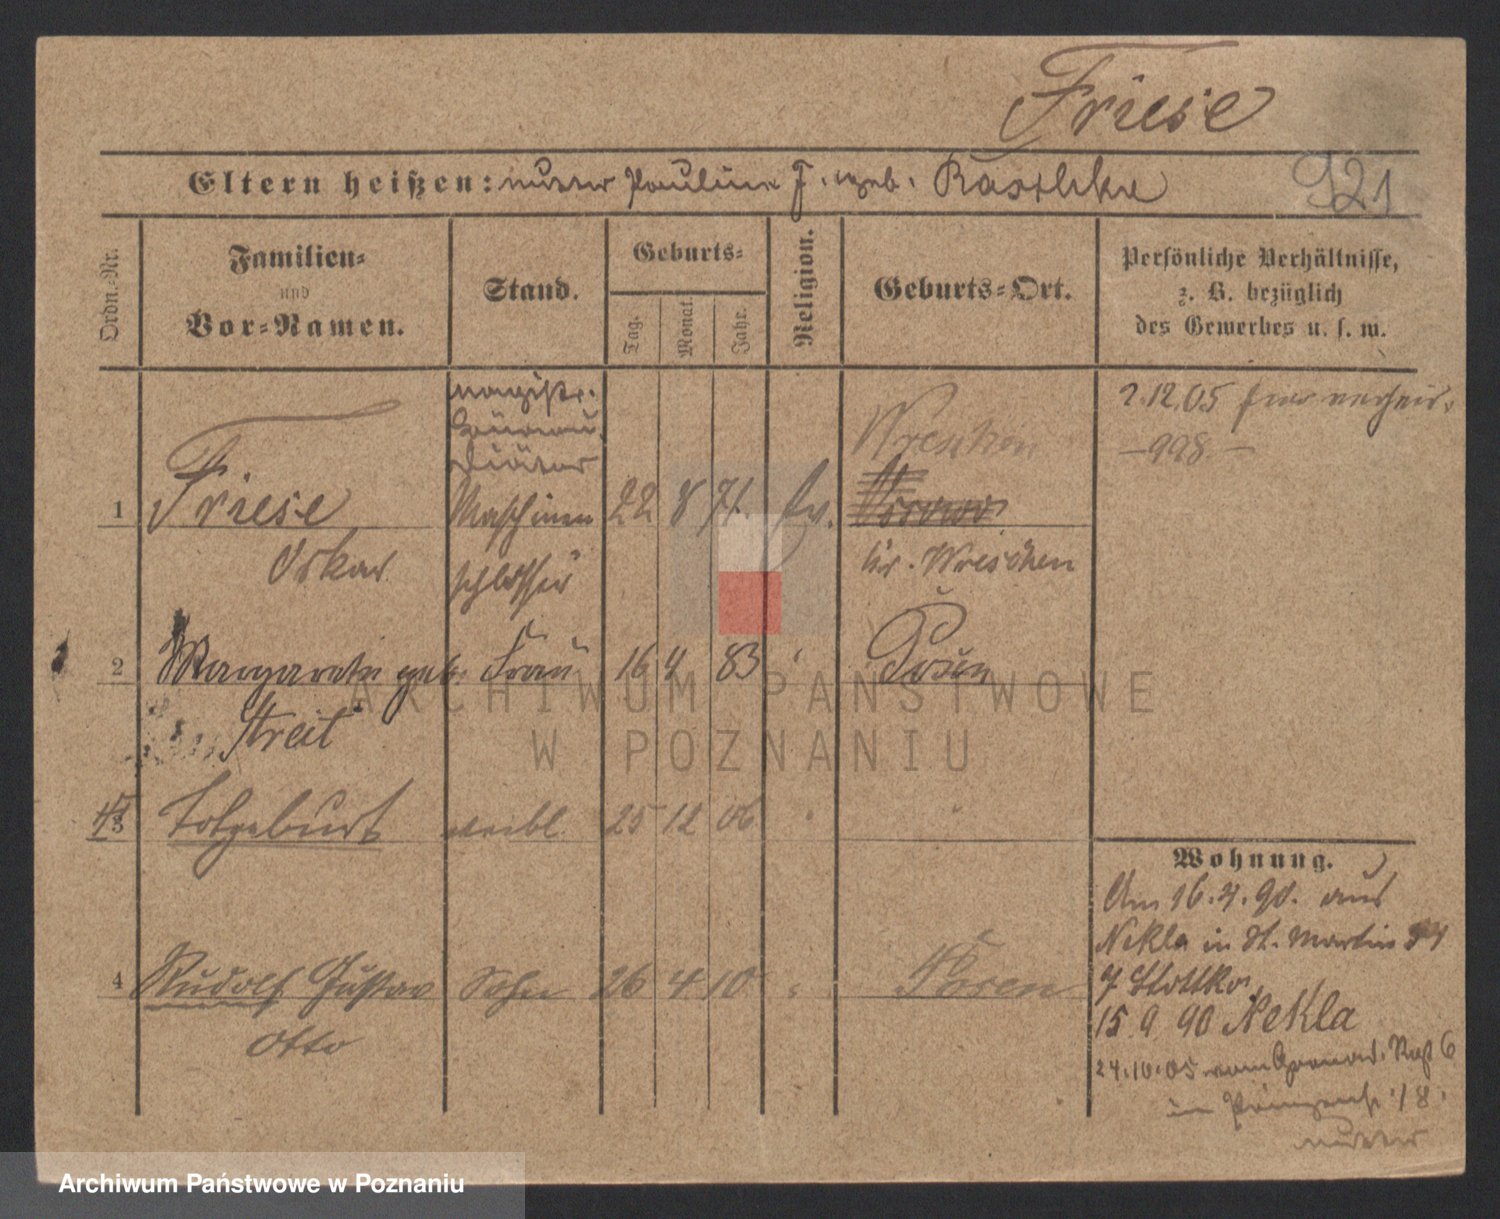 Friese
Eltern heißen: Mutter Pauline F. geb. Raschke
921
Ordn.-Nr.
Familien-
und
Vor-Namen.
Stand.
Geburts-
Tag.
Monat.
Jahr.
Religion.
Geburts-Ort.
Persönliche Verhältnisse,
z. B. bezüglich
des Gewerbes u. s. w.
Magistr.
Büreau
Diätar
1 Friese Maschinen 22 8 71 Ev.
Wreschen
Oskar schlosser Kr. Wreschen
2.12.05 hier verheir.
-998.-
2 Margarete geb. Frau 16 4 83 " Posen
Streit
3 Totgeburt weibl. 25 12 06 " "
4 Rudolf Gustav Sohn 26 4 10 " Posen
Otto
Wohnung.
Am 16.4.90. aus
Nekla in St. Martin 34
15.9 90 Nekla
24.10.05 vom
in 18.
Mutter
ARCHIWUM PAŃSTWOWE
W POZNANIU
Archiwum Państwowe w Poznaniu